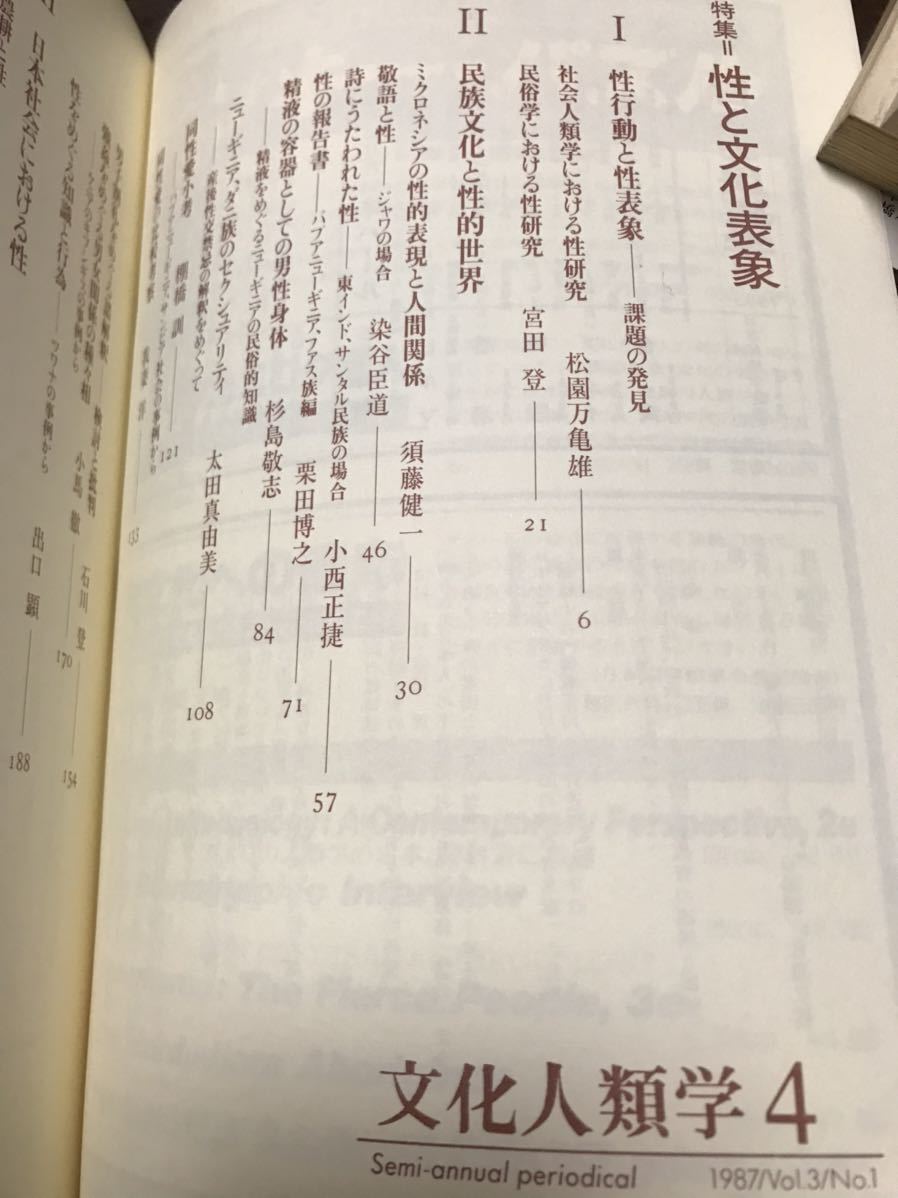 特集＝性と文化表象
I 性行動と性表象――課題の発見
社会人類学における性研究 松園万亀雄 6
民俗学における性研究 宮田 登 21
II 民族文化と性的世界
ミクロネシアの性的表現と人間関係 須藤健一 30
敬語と性――ジャワの場合 染谷臣道 46
詩にうたわれた性――東インド、サンタル民族の場合 小西正捷 57
性の報告書――パプアニューギニア、ファス族編 栗田博之 71
精液の容器としての男性身体
――精液をめぐるニューギニアの民俗的知識 杉島敬志 84
ニューギニア、ダニ族のセクシュアリティ
――産後性交禁忌の解釈をめぐって 太田真由美 108
同性愛小考
棚橋 訓 121
133
検討と批判 石川 登 154
小馬 徹 170
性をめぐる知識と行為 出口 顯 188
日本社会における性
文化人類学4
Semi-annual periodical 1987/Vol.3/No.1